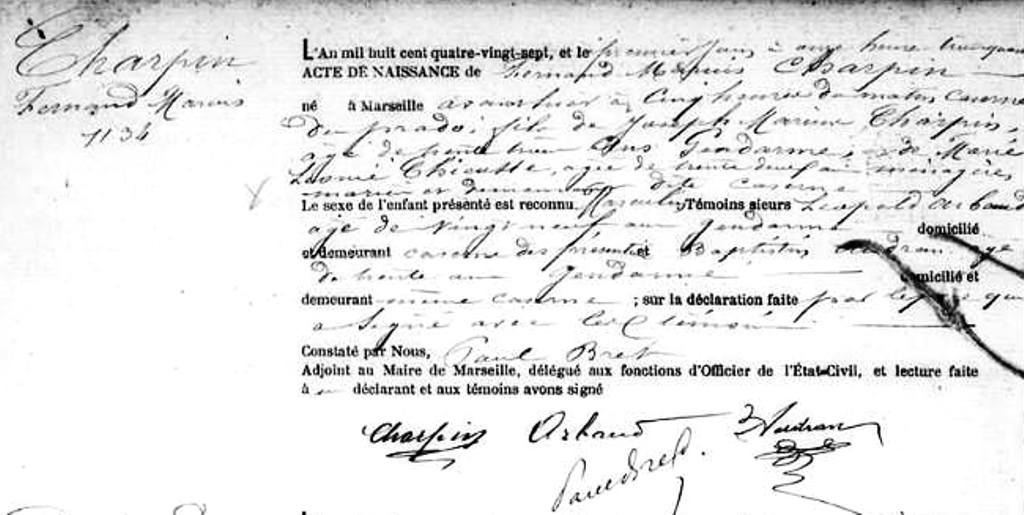 Charpin
Fernand Marius
1134
L'An mil huit cent quatre-vingt-sept, et le premier juin à onze heures
ACTE DE NAISSANCE de Fernand Marius Charpin
né à Marseille avant hier à cinq heures du matin caserne
du prado, fils de Joseph Marius Charpin,
âgé de trente trois ans Gendarme, & de Marie
âgée de trente neuf ans ménagère
mariés et demeurant dite caserne
Le sexe de l'enfant présenté est reconnu Masculin ; Témoins sieurs Léopold Arbaud
âgé de vingt neuf ans Gendarme domicilié
et demeurant caserne des présentes et Baptistin Audran âgé
de trente ans Gendarme domicilié et
demeurant même caserne ; sur la déclaration faite par le père qui
a signé avec les témoins
Constaté par Nous, Paul Bret
Adjoint au Maire de Marseille, délégué aux fonctions d'Officier de l'État-Civil, et lecture faite
à déclarant et aux témoins avons signé
Charpin Arbaud Audran
Paul Bret